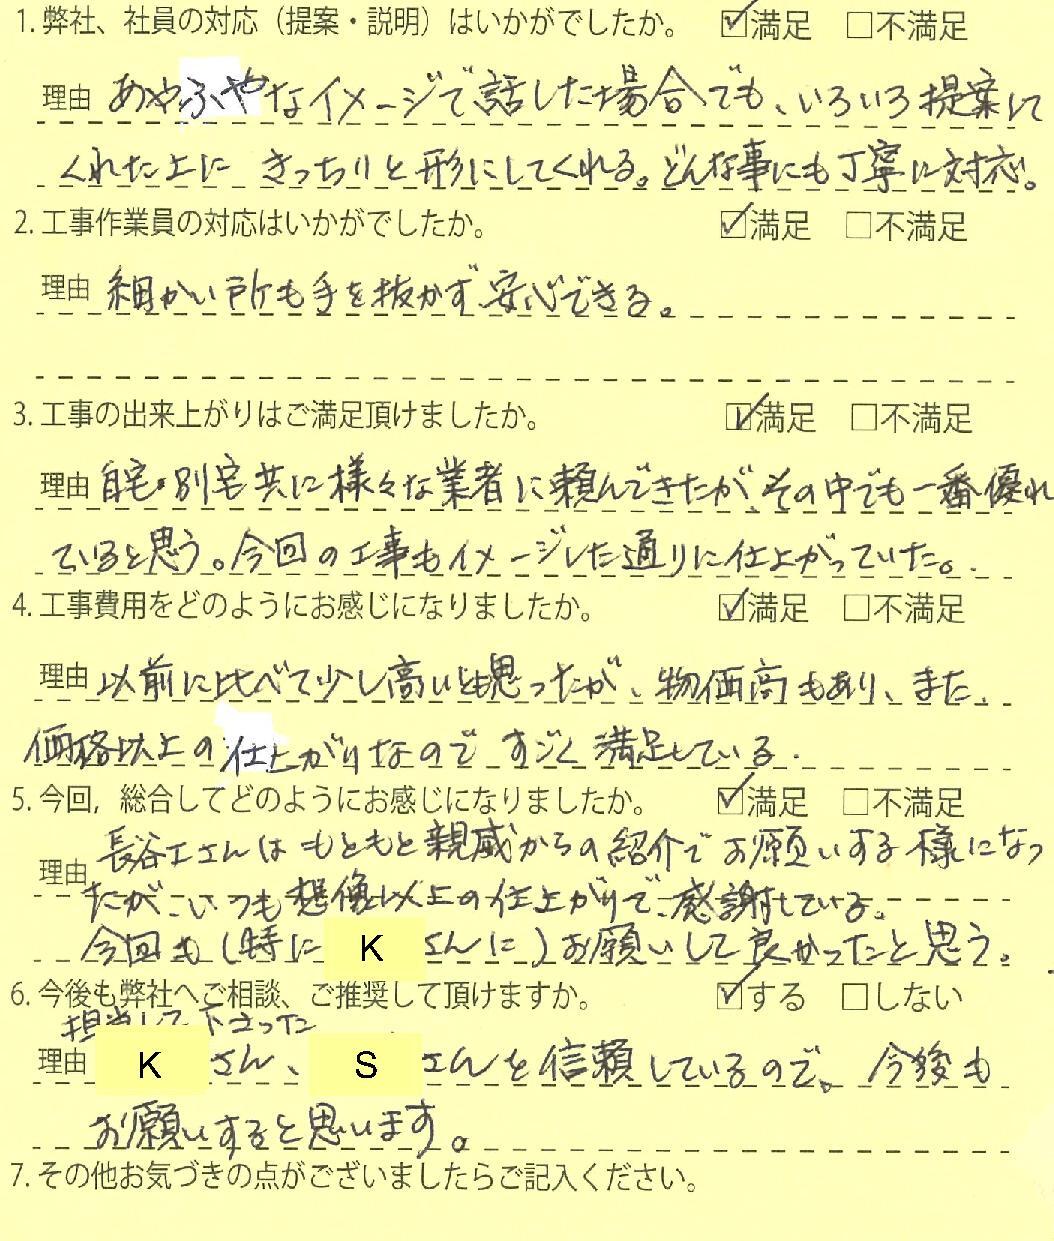 1. 弊社、社員の対応（提案・説明）はいかがでしたか。 ☑満足 □不満足
理由 あやふやなイメージで話した場合でも、いろいろ提案して
くれた上に きっちりと形にしてくれる。どんな事にも丁寧に対応。
2. 工事作業員の対応はいかがでしたか。 ☑満足 □不満足
理由 細かい所も手を抜かず、安心できる。
3. 工事の出来上がりはご満足頂けましたか。 ☑満足 □不満足
理由 自宅・別宅共に様々な業者に頼んできたが、その中でも一番優れ
ていると思う。今回の工事もイメージした通りに仕上がっていた。
4. 工事費用をどのようにお感じになりましたか。 ☑満足 □不満足
理由 以前に比べて少し高いとも思ったが、物価高もあり、また、
価格以上の仕上がりなので すごく満足している.
5. 今回, 総合してどのようにお感じになりましたか。 ☑満足 □不満足
理由 長谷工さんは もともと親戚からの紹介で お願いする様になっ
たが、いつも想像以上の仕上がりで、感謝している。
今回も（特に K さんに）お願いして良かったと思う。
6. 今後も弊社へご相談、ご推奨して頂けますか。 ☑する □しない
担当して下さった
理由 K さん、 S さんを信頼しているので、今後も
お願いすると思います。
7. その他お気づきの点がございましたらご記入ください。